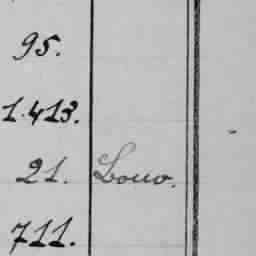 95.
1.413.
21. Louo.
711.